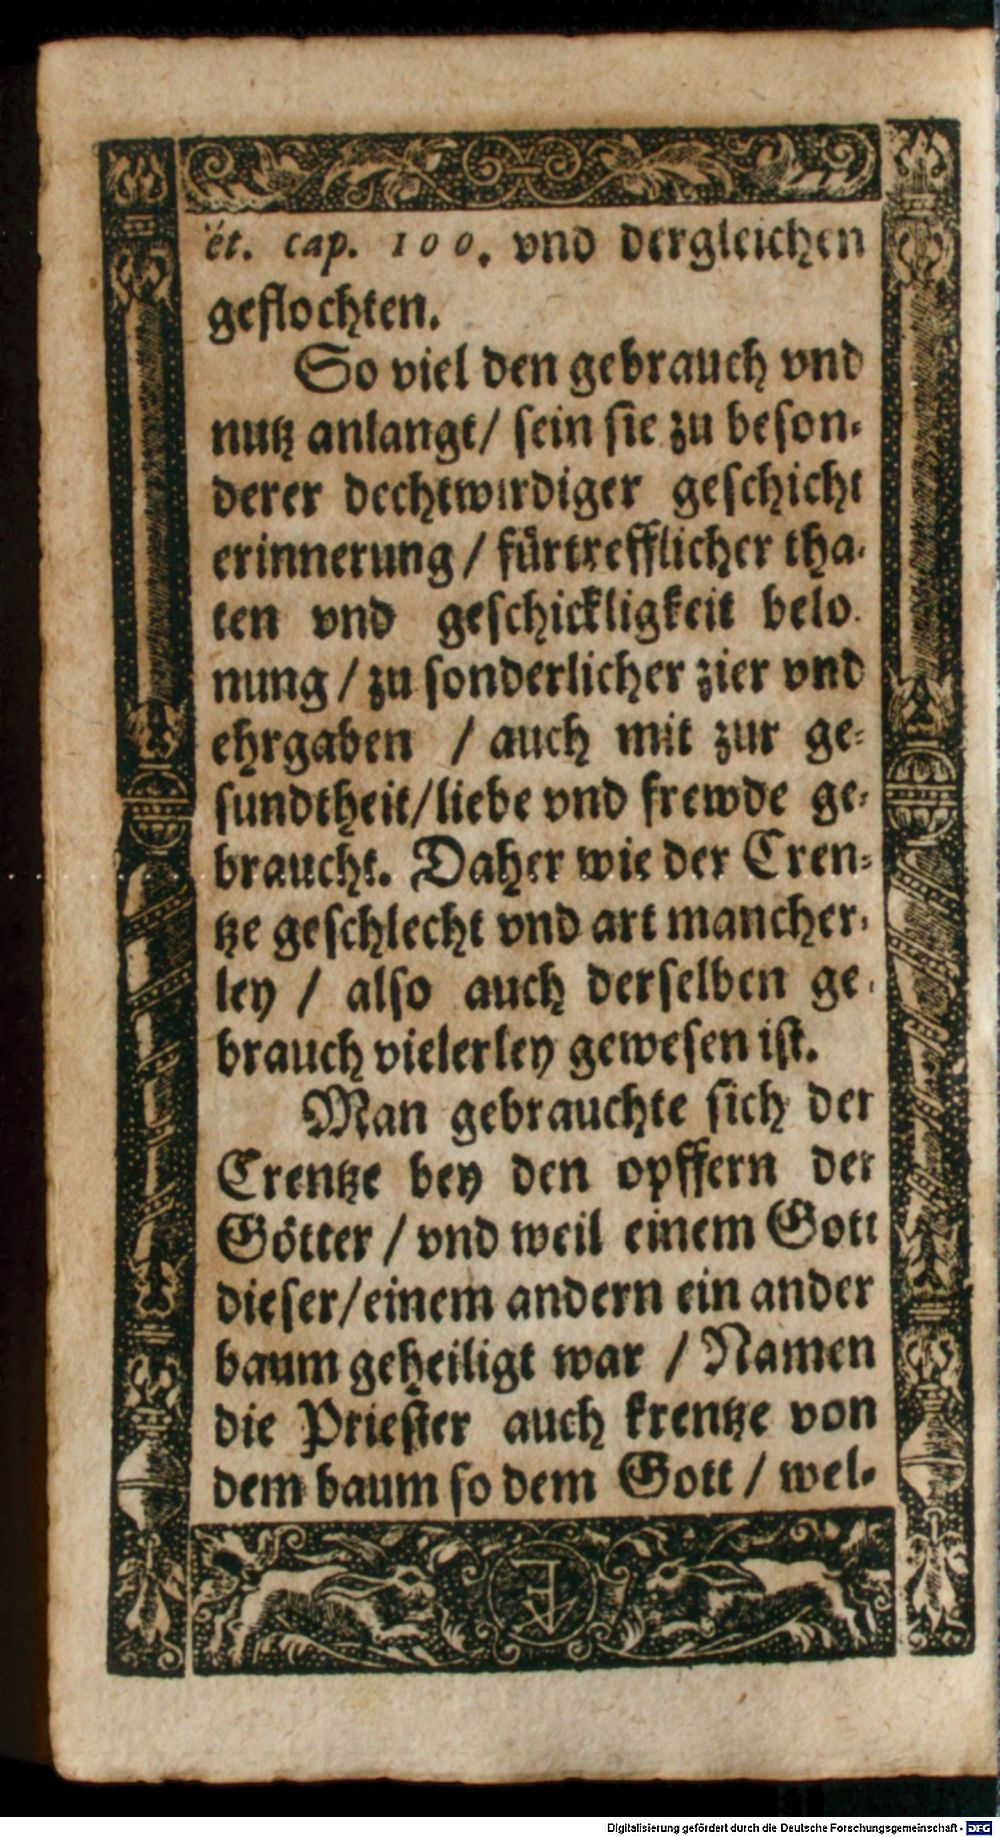 ët. cap. 100. vnd dergleichen
geflochten.
So viel den gebrauch vnd
nutz anlangt/ sein sie zu beson-
derer dechtwirdiger geschicht
erinnerung / fürtrefflicher tha-
ten vnd geschickligkeit belo-
nung / zu sonderlicher zier vnd
ehrgaben / auch mit zur ge-
sundtheit/liebe vnd frewde ge-
braucht. Daher wie der Cren-
tze geschlecht vnd art mancher-
ley / also auch derselben ge-
brauch vielerley gewesen ist.
Man gebrauchte sich der
Crentze bey den opffern der
Götter / vnd weil einem Gott
dieser/einem andern ein ander
baum geheiligt war / Namen
die Priester auch krentze von
dem baum so dem Gott / wel-
Digitalisierung gefördert durch die Deutsche Forschungsgemeinschaft - DFG